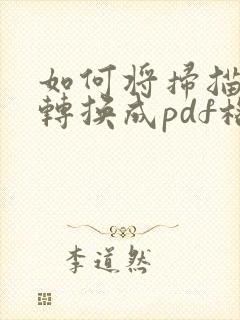 如何将掃描
轉換成pdf格
李道然